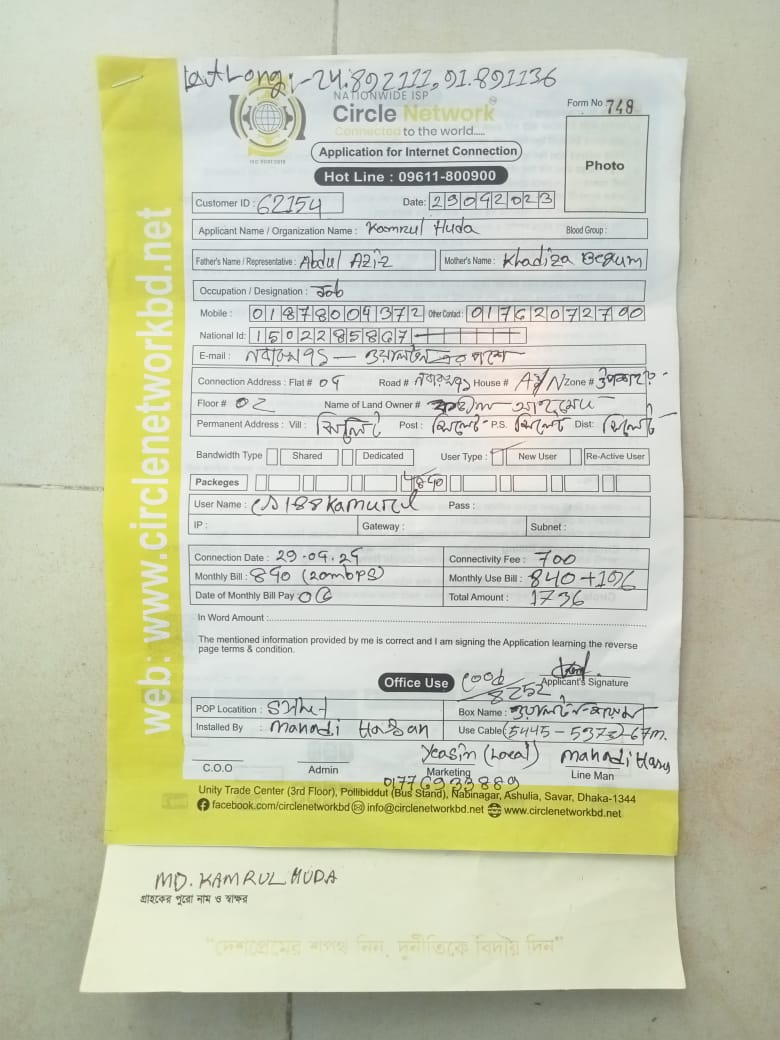 Lat Long:-24.892111, 91.891136
NATIONWIDE ISP
Circle Network
Connected to the world.....
ISO 9001:2015
Form No 748
Application for Internet Connection
Hot Line : 09611-800900
Photo
Customer ID : 62154 Date: 29042023
Applicant Name / Organization Name : Kamrul Huda Blood Group :
Father's Name / Representative : Abdul Aziz Mother's Name : Khadiza Begum
Occupation / Designation : Job
Mobile : 01878004372 Other Contact : 01762072790
National Id: 1502285867
E-mail :
Connection Address : Flat # 04 Road # House # A/N Zone #
Floor # 02 Name of Land Owner #
Permanent Address : Vill : সিলেট Post : সিলেট P.S. সিলেট Dist: সিলেট
Bandwidth Type Shared Dedicated User Type : New User Re-Active User
Packeges 840
User Name : Pass :
IP : Gateway : Subnet :
Connection Date : 29.04.24 Connectivity Fee : 700
Monthly Bill : 890 (20mbps) Monthly Use Bill : 840+196
Date of Monthly Bill Pay 06 Total Amount : 1736
In Word Amount :
The mentioned information provided by me is correct and I am signing the Application learning the reverse
page terms & condition.
Office Use 8252 Applicant's Signature
POP Locatition : Sylhet Box Name :
Installed By : Mahadi Hassan Use Cable (5445-5378)-67m.
Yeasin (Local) Mahadi Hasan
C.O.O Admin Marketing Line Man
01776933889
Unity Trade Center (3rd Floor), Pollibiddut (Bus Stand), Nabinagar, Ashulia, Savar, Dhaka-1344
facebook.com/circlenetworkbd info@circlenetworkbd.net www.circlenetworkbd.net
web: www.circlenetworkbd.net
MD. KAMRUL HUDA
গ্রাহকের পুরো নাম ও স্বাক্ষর
"দেশপ্রেমের শপথ নিন, দুর্নীতিকে বিদায় দিন"